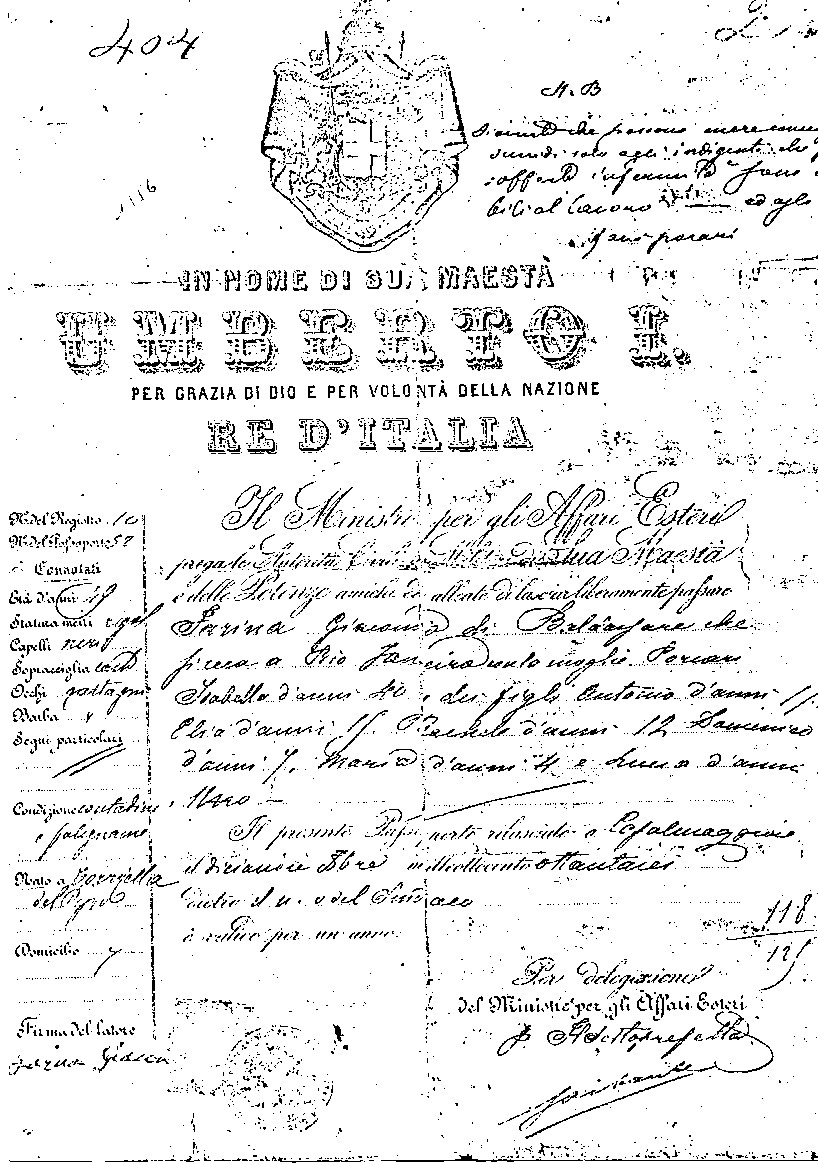 404
N.B
che possono
solo agli indigenti che
sofferto infermi
al lavoro ed agli
IN NOME DI SUA MAESTÀ
UMBERTO I.
PER GRAZIA DI DIO E PER VOLONTÀ DELLA NAZIONE
RE D'ITALIA
N.° del Registro 10
N.° del Passaporto 57
Connotati
Età d'anni 49
Statura metri
Capelli neri
Sopracciglia
Occhi castagni
Barba
Segni particolari
Condizione contadino
e falegname
Nato a Torricella
del Pizzo
Domicilio
Firma del latore
Farina Giacomo
Il Ministro per gli Affari Esteri
prega le Autorità Civili e Militari di Sua Maestà
e delle Potenze amiche ed alleate di lasciar liberamente passare
Farina Giacomo di Baldassare che
si reca a Rio Janeiro moglie Porcari
Isabella d'anni 40, dei figli Antonio d'anni
Elia d'anni 15. Rachele d'anni 12 Domenico
d'anni 7. Maria d'anni 4 e Luca d'anni
uno
Il presente Passaporto rilasciato a Casalmaggiore
il diecinove 8bre milleottocento ottantasei
dietro il n. o del Sindaco
è valido per un anno.
118
125
Per delegazione
del Ministro per gli Affari Esteri
Il Sottoprefetto